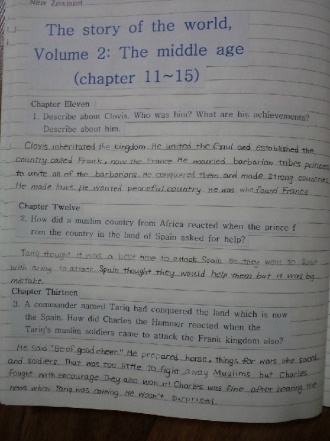 New Zealand
The story of the world,
Volume 2: The middle age
(chapter 11~15)
Chapter Eleven
1. Describe about Clovis. Who was him? What are his achievements?
Describe about him.
Clovis inheritated the kingdom. He united the Gaul and established the
country called Frank, now the France. He married barbarian tribes princess
to unite all of the barbarians. He conquered them and made strong countries.
He made but He wanted peaceful country. He was who found France
Chapter Twelve
2. How did a muslim country from Africa reacted when the prince f
rom the country in the land of Spain asked for help?
Tariq thought it was a best time to attack Spain. So they went to Spain
with army to attack. Spain thought they would help them but it was big
mistake.
Chapter Thirteen
3. A commander named Tariq had conquered the land which is now
the Spain. How did Charles the Hammer reacted when the
Tariq's muslim soldiers came to attack the Frank kingdom also?
He said "Be of good cheer." He prepared horse, things for wars like sword
and soldiers. That was too little to fight away Muslims but Charles
fought with encourage. They also won it! Charles was fine after hearing the
news when Tariq was coming. He wasn't surprised.